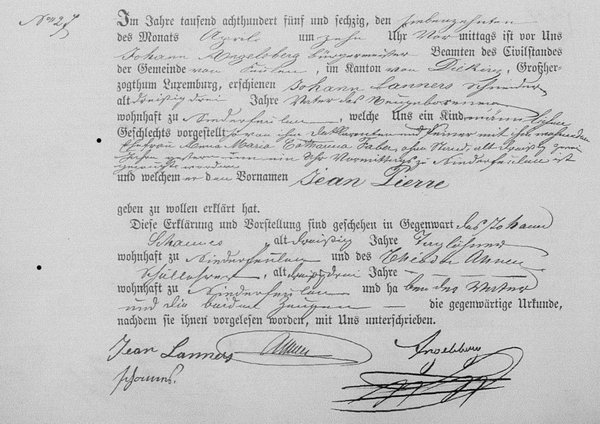 Nro 27
Im Jahre tausend achthundert fünf und sechzig, den siebenzehnten
des Monats April um zehn Uhr Vor mittags ist vor Uns
Johann Angelsberg Bürgermeister Beamten des Civilstandes
der Gemeinde von Feulen, im Kanton von Diekirch, Großher-
zogthum Luxemburg, erschienen Johann Lanners Schneider
alt dreißig drei Jahre Vater des Neugeborenen
wohnhaft zu Niederfeulen, welche Uns ein Kind männlichen
Geschlechts vorgestellt, so von ihm Deklaranten und seiner mit ihm wohnenden
Ehefrau Anna Maria Catharina Faber, ohne Stand, alt dreißig zwei
Jahre gestern um ein Uhr Vormittags zu Niederfeulen ist
und welchem er den Vornamen Jean Pierre
geben zu wollen erklärt hat.
Diese Erklärung und Vorstellung sind geschehen in Gegenwart des Johann
Schannes, alt dreißig Jahre Taglöhner
wohnhaft zu Niederfeulen und des Theodor Annen
Schullehrer, alt drei Jahre
wohnhaft zu Niederfeulen und ha ben der Vater
und die beiden Zeugen die gegenwärtige Urkunde,
nachdem sie ihnen vorgelesen worden, mit Uns unterschrieben.
Jean Lanners Annen Angelsberg
Schannes.